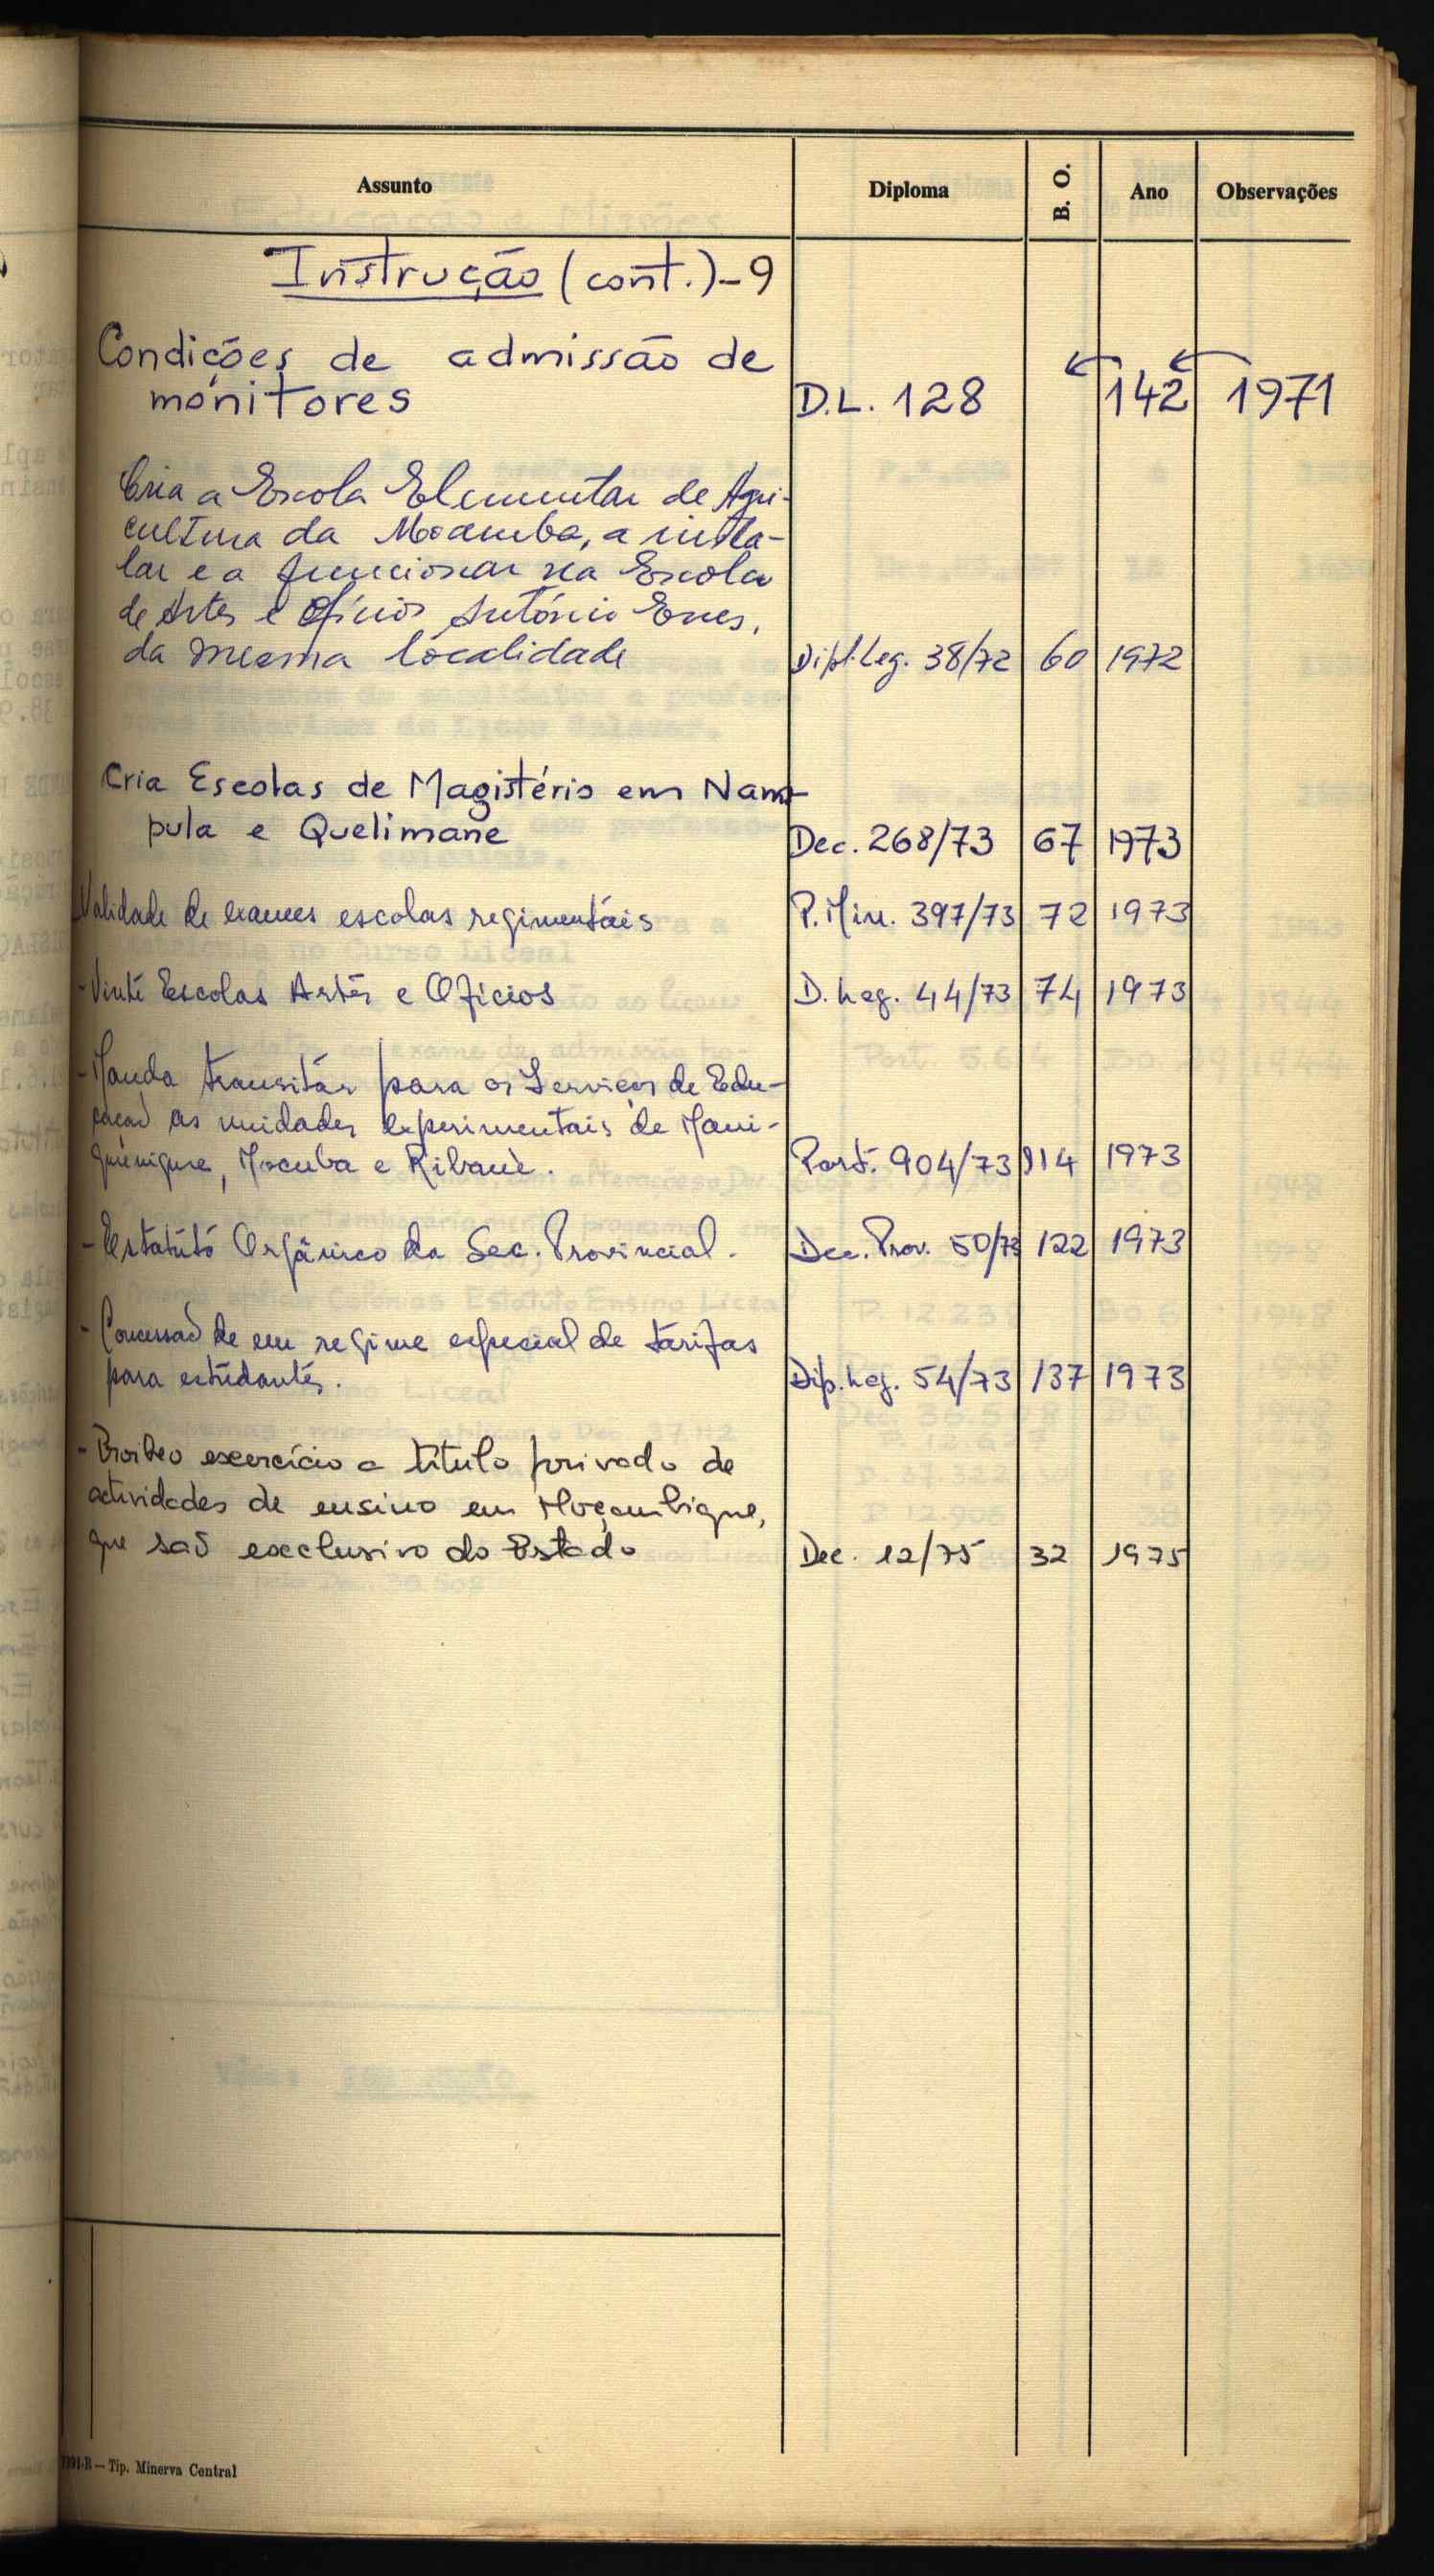 Assunto Diploma B. O. Ano Observações
Instrução (cont.)-9
Condições de admissão de
monitores D.L. 128 142 1971
Cria a Escola Elementar de Agri-
cultura da Moamba, a insta-
lar e a funcionar na Escola
de Artes e Ofícios António Enes,
da mesma localidade Dipl. Leg. 38/72 60 1972
Cria Escolas de Magistério em Nam-
pula e Quelimane Dec. 268/73 67 1973
Validade de exames escolas regimentais P. Min. 397/73 72 1973
- Vinte Escolas Artes e Ofícios D. Leg. 44/73 74 1973
- Manda transitar para os Serviços de Edu-
cação as unidades experimentais de Mani-
quenique, Mocuba e Ribauè. Port. 904/73 114 1973
- Estatuto Orgânico da Sec. Provincial. Dec. Prov. 50/73 122 1973
- Concessão de um regime especial de tarifas
para estudantes. Dip. Leg. 54/73 137 1973
- Proibe o exercício a título privado de
actividades de ensino em Moçambique,
que são exclusivo do Estado Dec. 12/75 32 1975
- Tip. Minerva Central